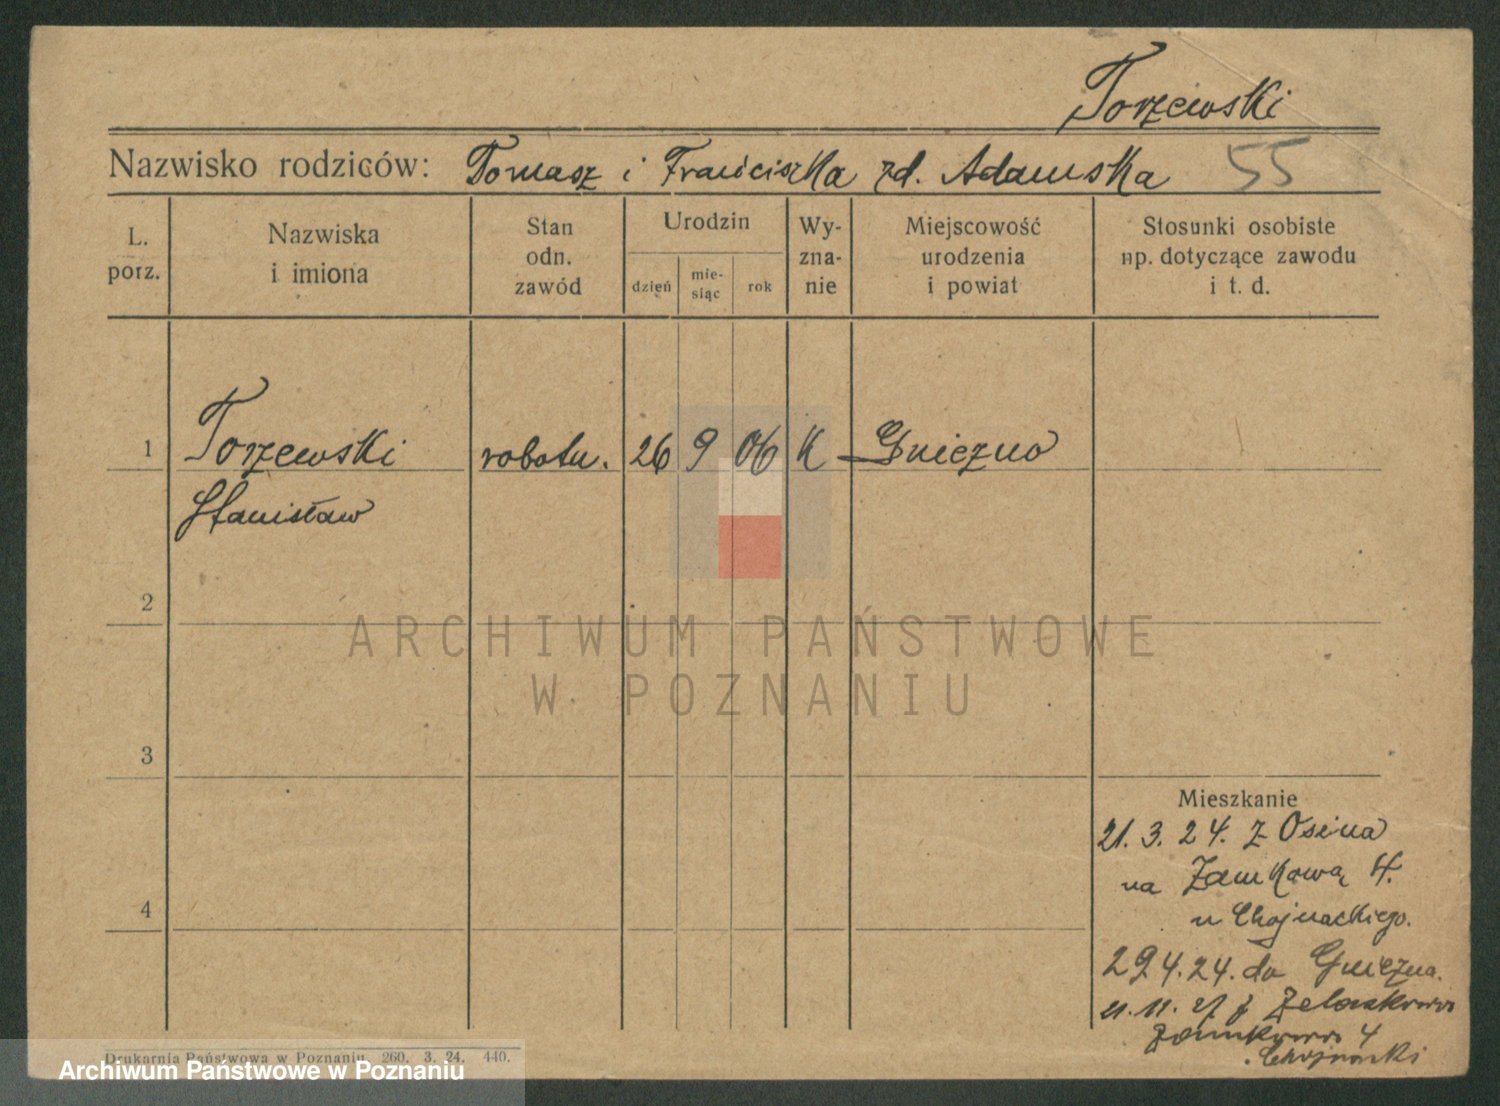 Torzewski
Nazwisko rodziców: Tomasz i Franciszka zd. Adamska 55
L. porz.
Nazwiska i imiona
Stan odn. zawód
Urodzin
dzień
mie- siąc
rok
Wy- zna- nie
Miejscowość urodzenia i powiat
Stosunki osobiste np. dotyczące zawodu i t. d.
1 Torzewski robotn. 26 9 06 K Gniezno
Stanisław
2
ARCHIWUM PAŃSTWOWE
W POZNANIU
3
Mieszkanie
21. 3. 24. z Osina
na Zamkową 4.
4
u Chojnackiego.
29 4. 24. do Gniezna.
11. 27 z
Zamkowa 4
Chojnacki
Drukarnia Państwowa w Poznaniu 260. 3. 24. 440.
Archiwum Państwowe w Poznaniu